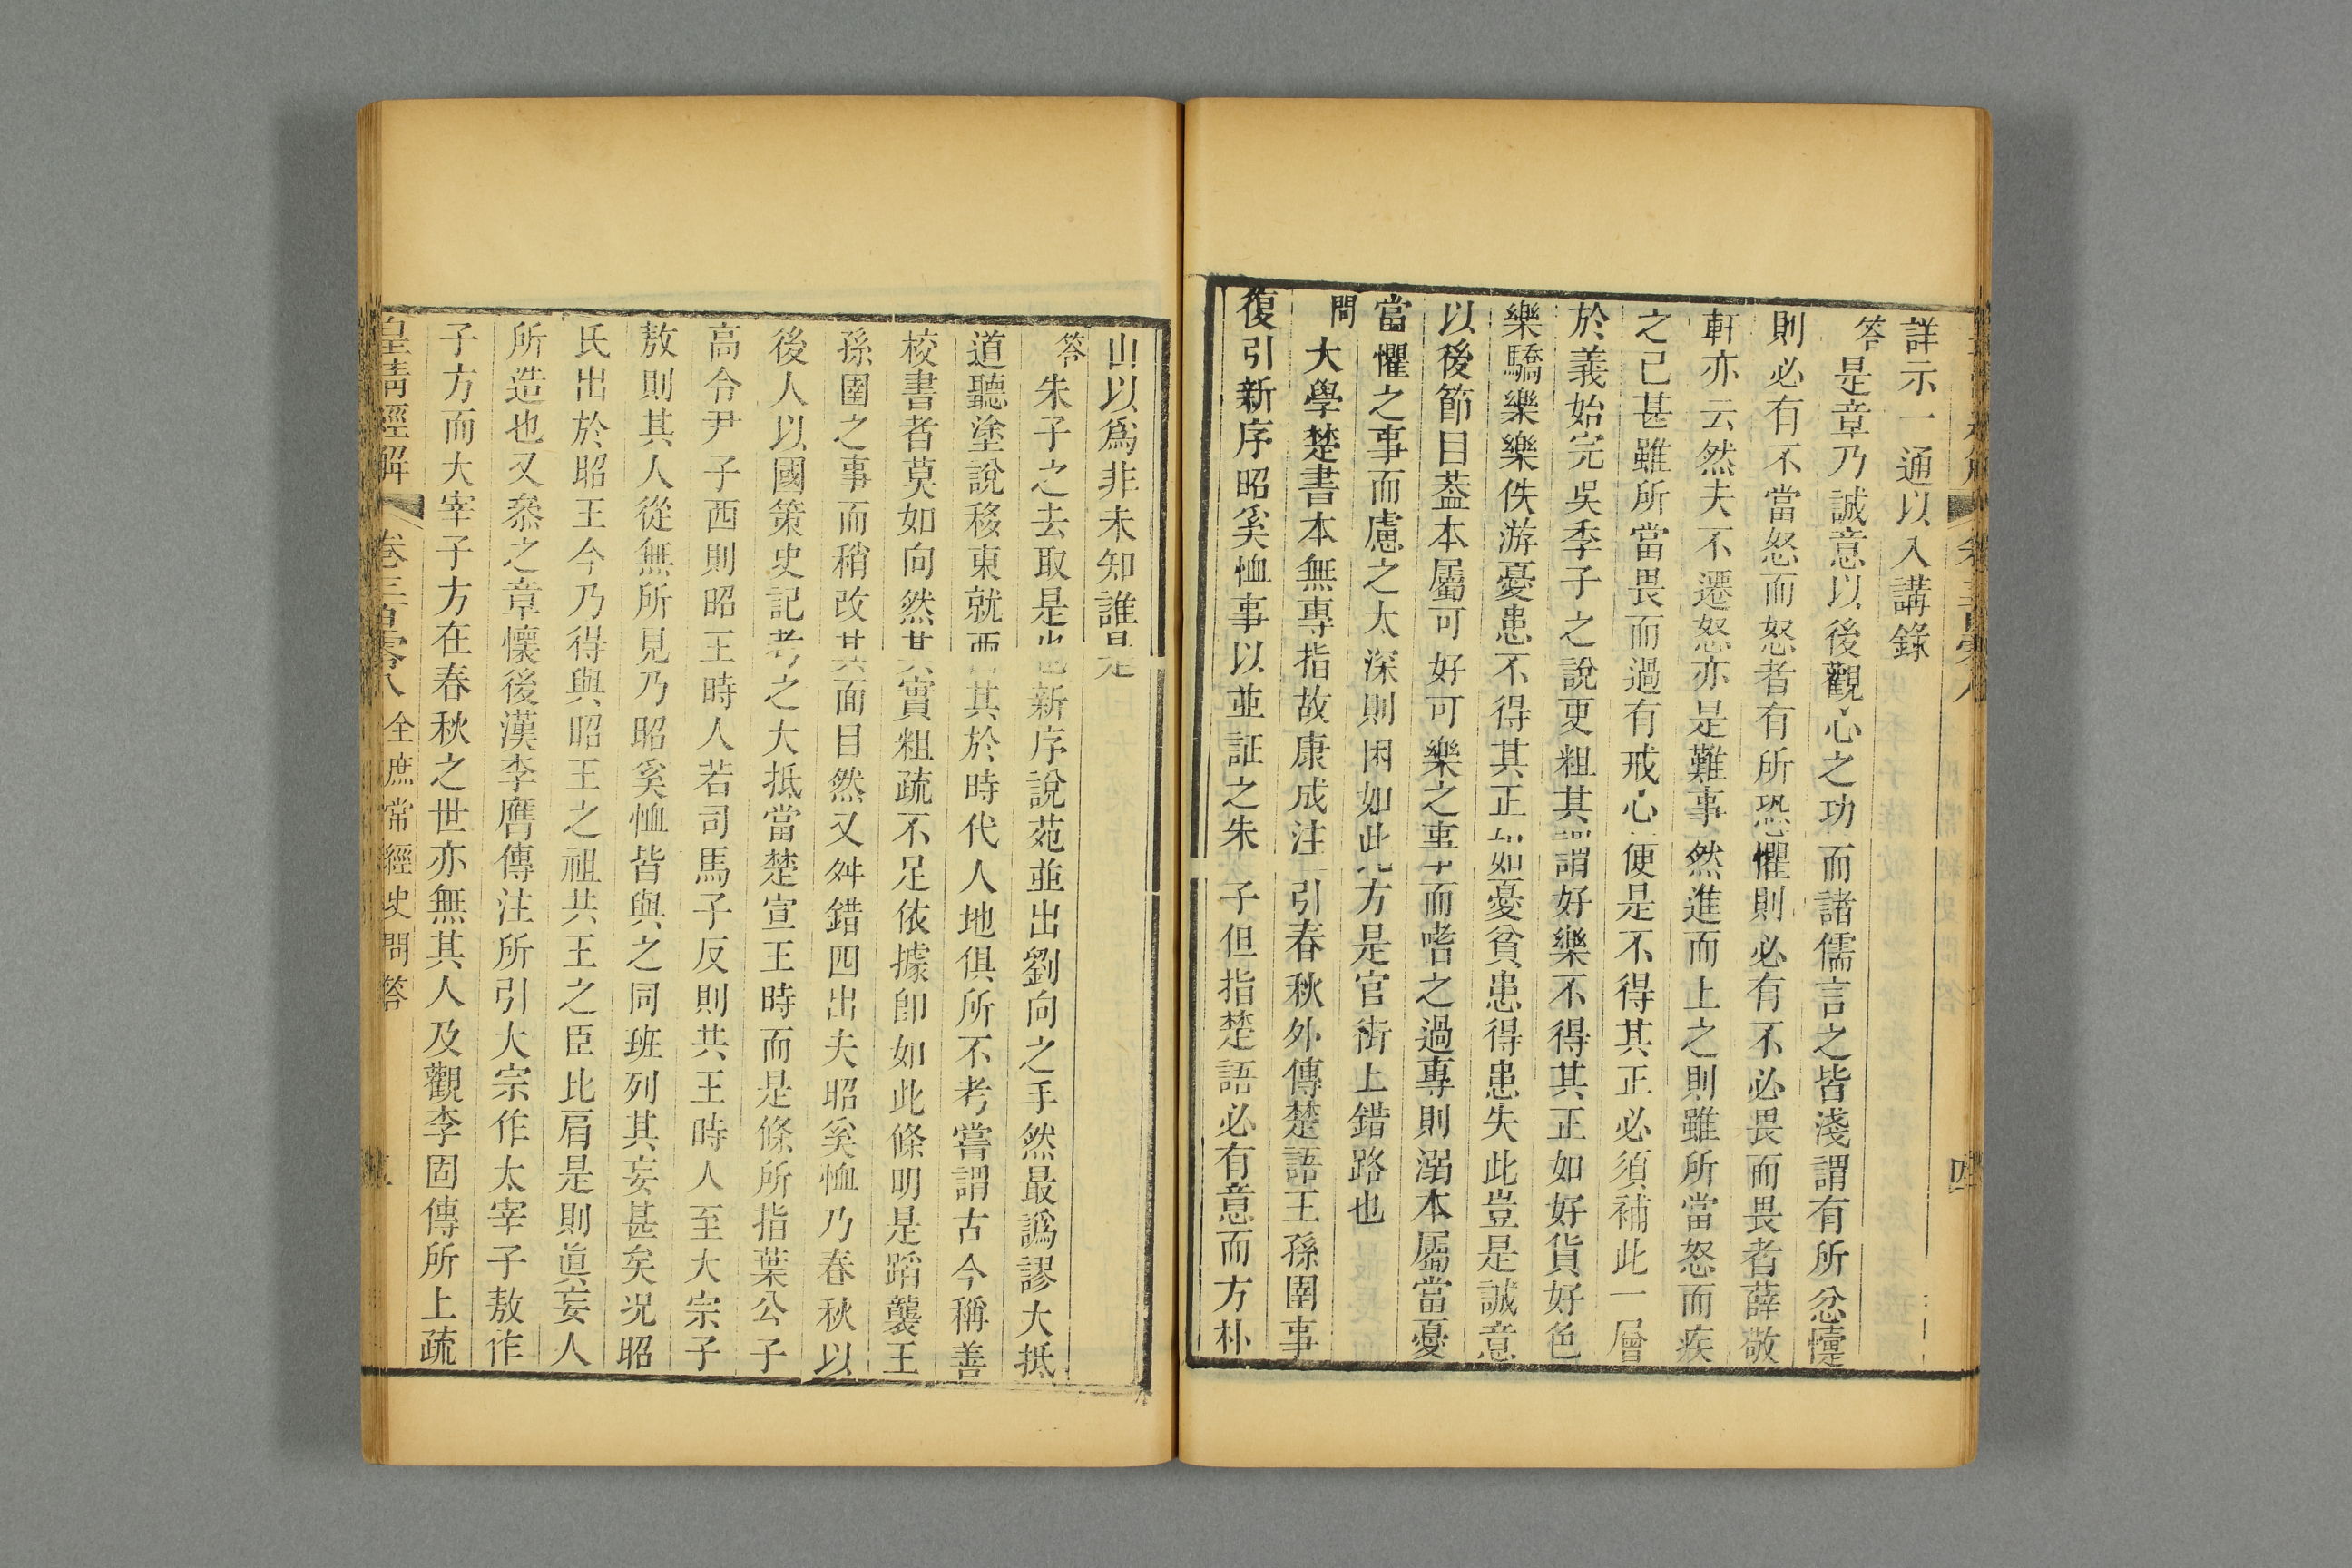 詳示一通以入講錄
答是章乃誠意以後觀心之功而諸儒言之皆淺謂有所忿懥
則必有不當怒而怒者有所恐懼則必有不必畏而畏者薛敬
軒亦云然夫不遷怒亦是難事然進而上之則雖所當怒而疾
之已甚雖所當畏而過有戒心便是不得其正必須補此一層
於義始完吳季子之說更粗其謂好樂不得其正如好貨好色
樂驕樂樂佚游憂患不得其正如憂貧患得患失此豈是誠意
以後節目葢本屬可好可樂之事而嗜之過專則溺本屬當憂
當懼之事而慮之太深則困如此方是官街上錯路也
問大學楚書本無專指故康成注引春秋外傳楚語王孫圉事
復引新序昭奚恤事以並証之朱子但指楚語必有意而方朴
山以爲非未知誰是
答朱子之去取是也新序說苑並出劉向之手然最譌謬大抵
道聽塗說移東就西其於時代人地俱所不考嘗謂古今稱善
校書者莫如向然其實粗疏不足依據卽如此條明是蹈襲王
孫圉之事而稍改其面目然又舛錯四出夫昭奚恤乃春秋以
後人以國策史記考之大抵當楚宣王時而是條所指葉公子
高令尹子西則昭王時人若司馬子反則共王時人至大宗子
敖則其人從無所見乃昭奚恤皆與之同班列其妄甚矣况昭
氏出於昭王今乃得與昭王之祖共王之臣比肩是則眞妄人
所造也又叅之章懷後漢李膺傳注所引大宗作太宰子敖作
子方而大宰子方在春秋之世亦無其人及觀李固傳所上疏
皇清經解 卷三百零八 全庶常經史問答